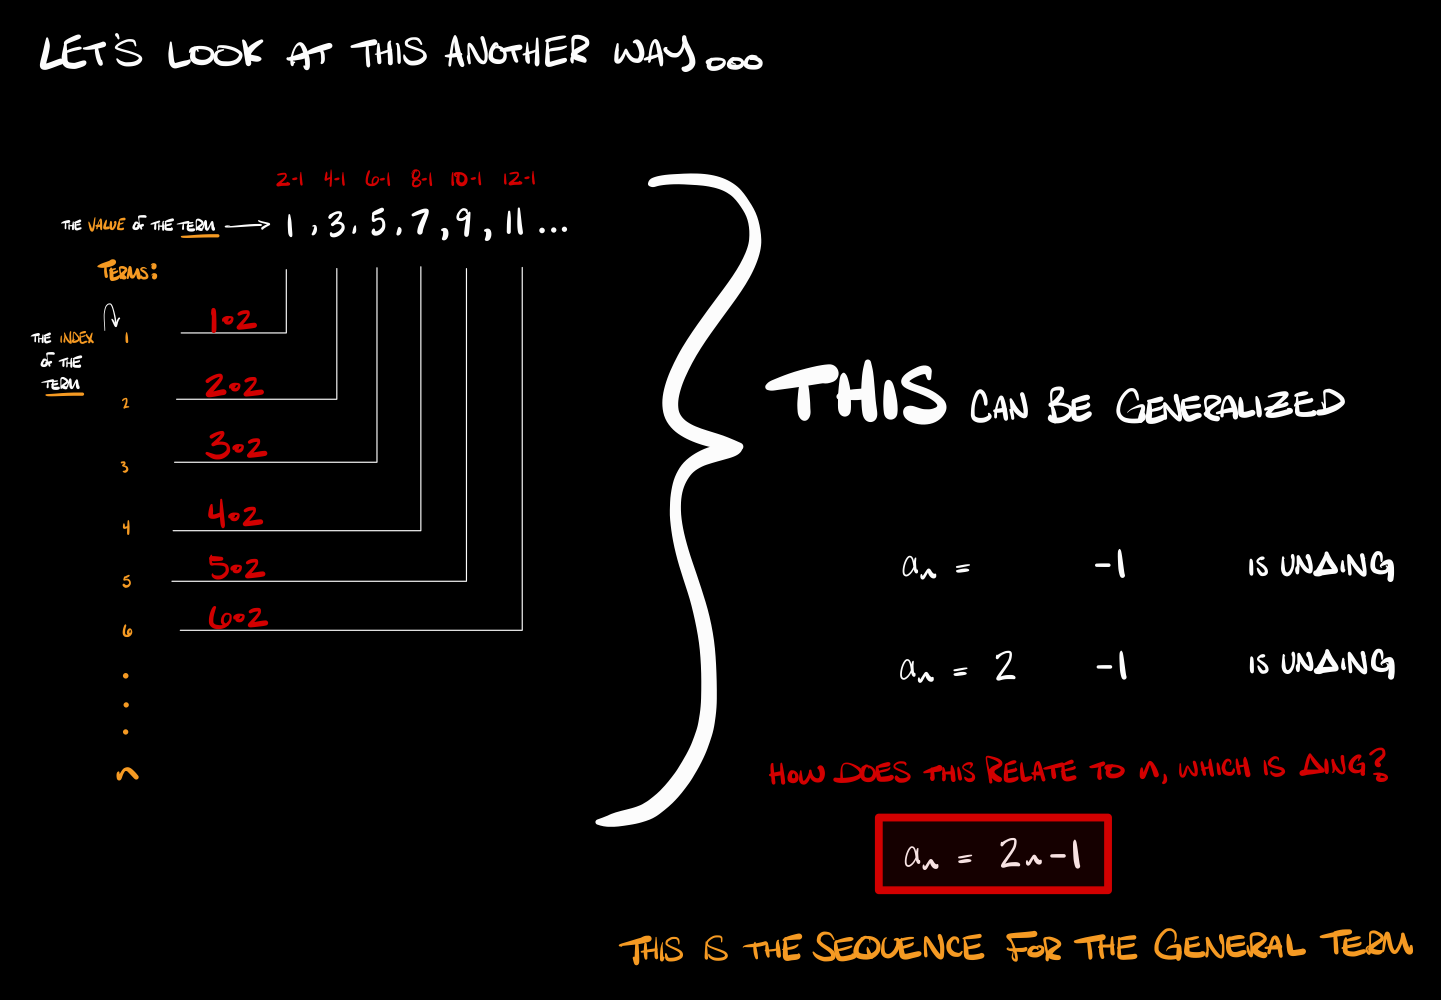 LET'S LOOK AT THIS ANOTHER WAY...
2-1 4-1 6-1 8-1 10-1 12-1
THE VALUE OF THE TERM → 1, 3, 5, 7, 9, 11 ...
TERMS:
THE INDEX OF THE TERM
1 1•2
2 2•2
3 3•2
4 4•2
5 5•2
6 6•2
n
THIS CAN BE GENERALIZED
aₙ = -1 IS UNΔING
aₙ = 2 -1 IS UNΔING
HOW DOES THIS RELATE TO n, WHICH IS ΔING?
aₙ = 2n-1
THIS IS THE SEQUENCE FOR THE GENERAL TERM